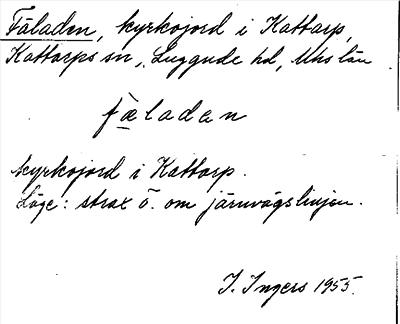 Fäladen, kyrkojord i Kattarp,
Kattarps sn, Luggude hd, Mhs län
fæladen
kyrkojord i Kattarp.
Läge: strax ö. om järnvägslinjen.
I. Ingers 1955.